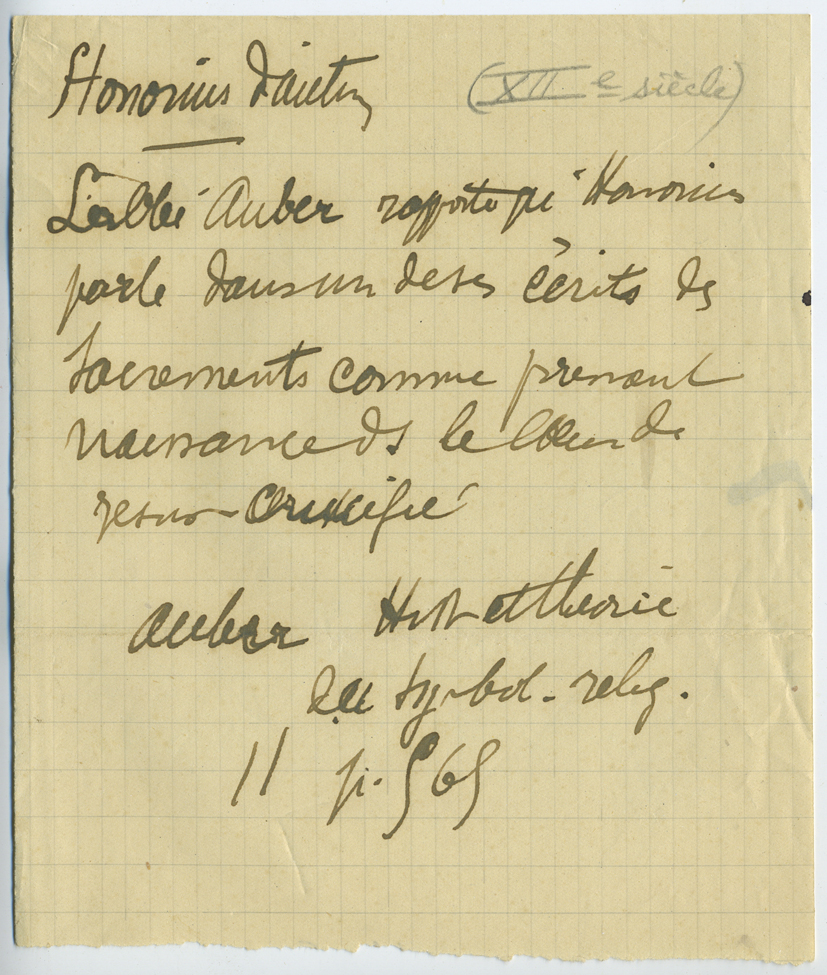 Honorius d'autun (XIIe siècle)
L'abbé Auber rapporte qu' Honorius
parle dans un de ses écrits des
sacrements comme prenant
naissance ds le Cœur de
Jesus-Crucifié
Auber Hist et théorie
du Symbol. relig.
II p. 565